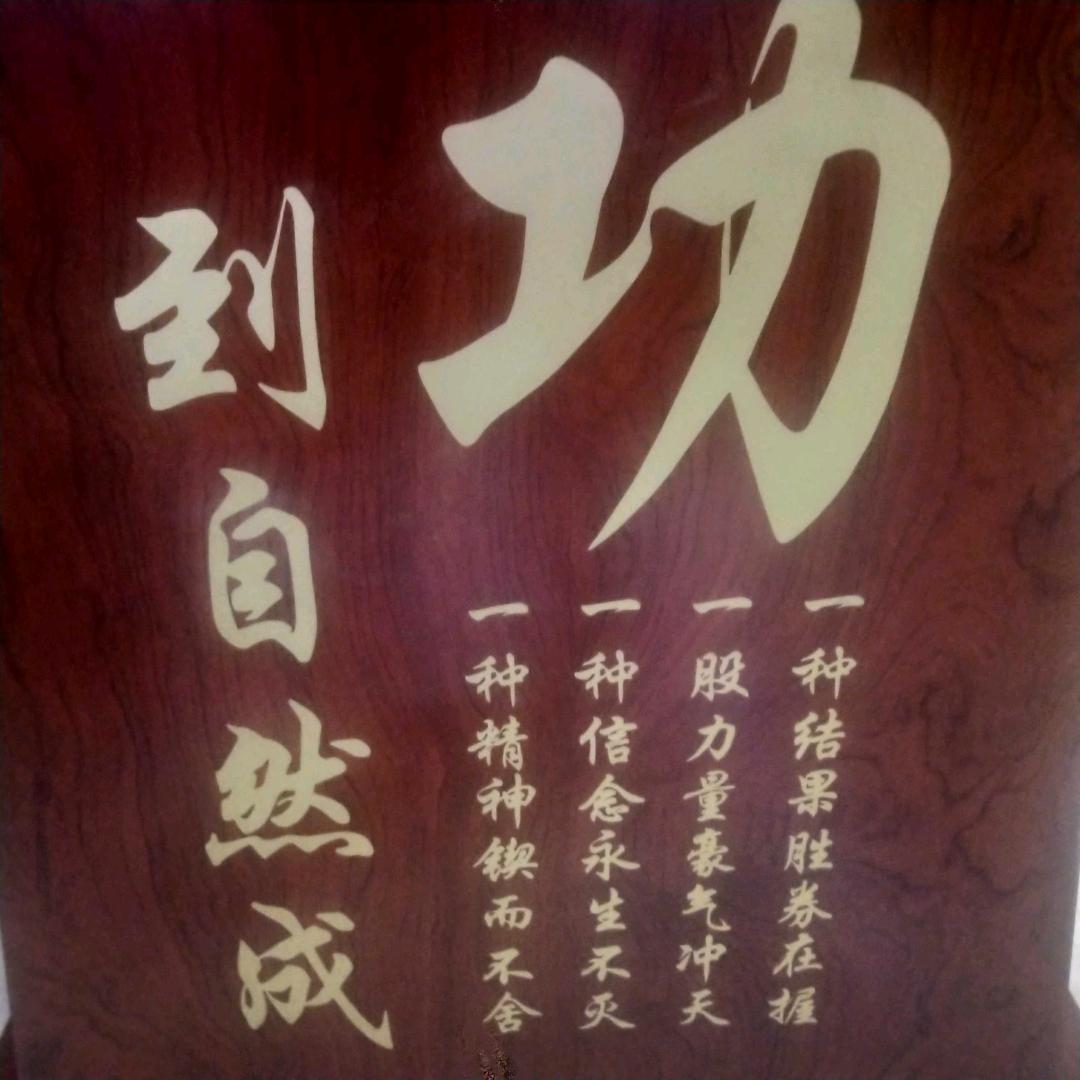 功
到自然成
一种精神锲而不舍
一种信念永生不灭
一股力量豪气冲天
一种结果胜券在握